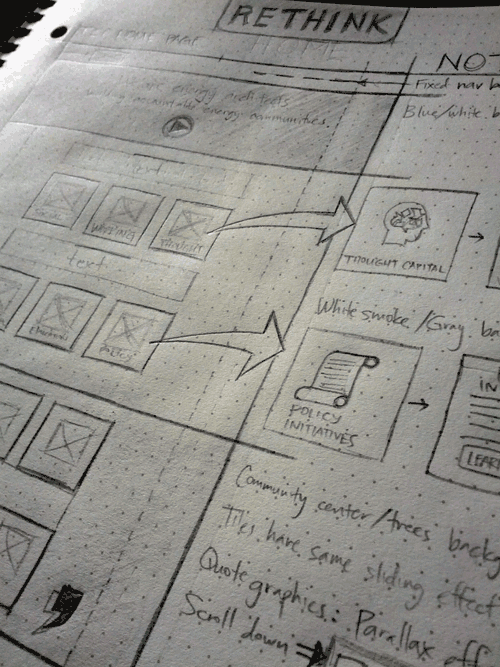 RETHINK
HOME PAGE
HOME
NOT
Fixed nav b
Blue/white b
energy architects
sustainable energy communities.
text
text
THOUGHT CAPITAL
White smoke/Gray ba
POLICY
INITIATIVES
IN
LEAR
Community center/trees backg
Tiles have same sliding effect
Quote graphics: Parallax eff
Scroll down